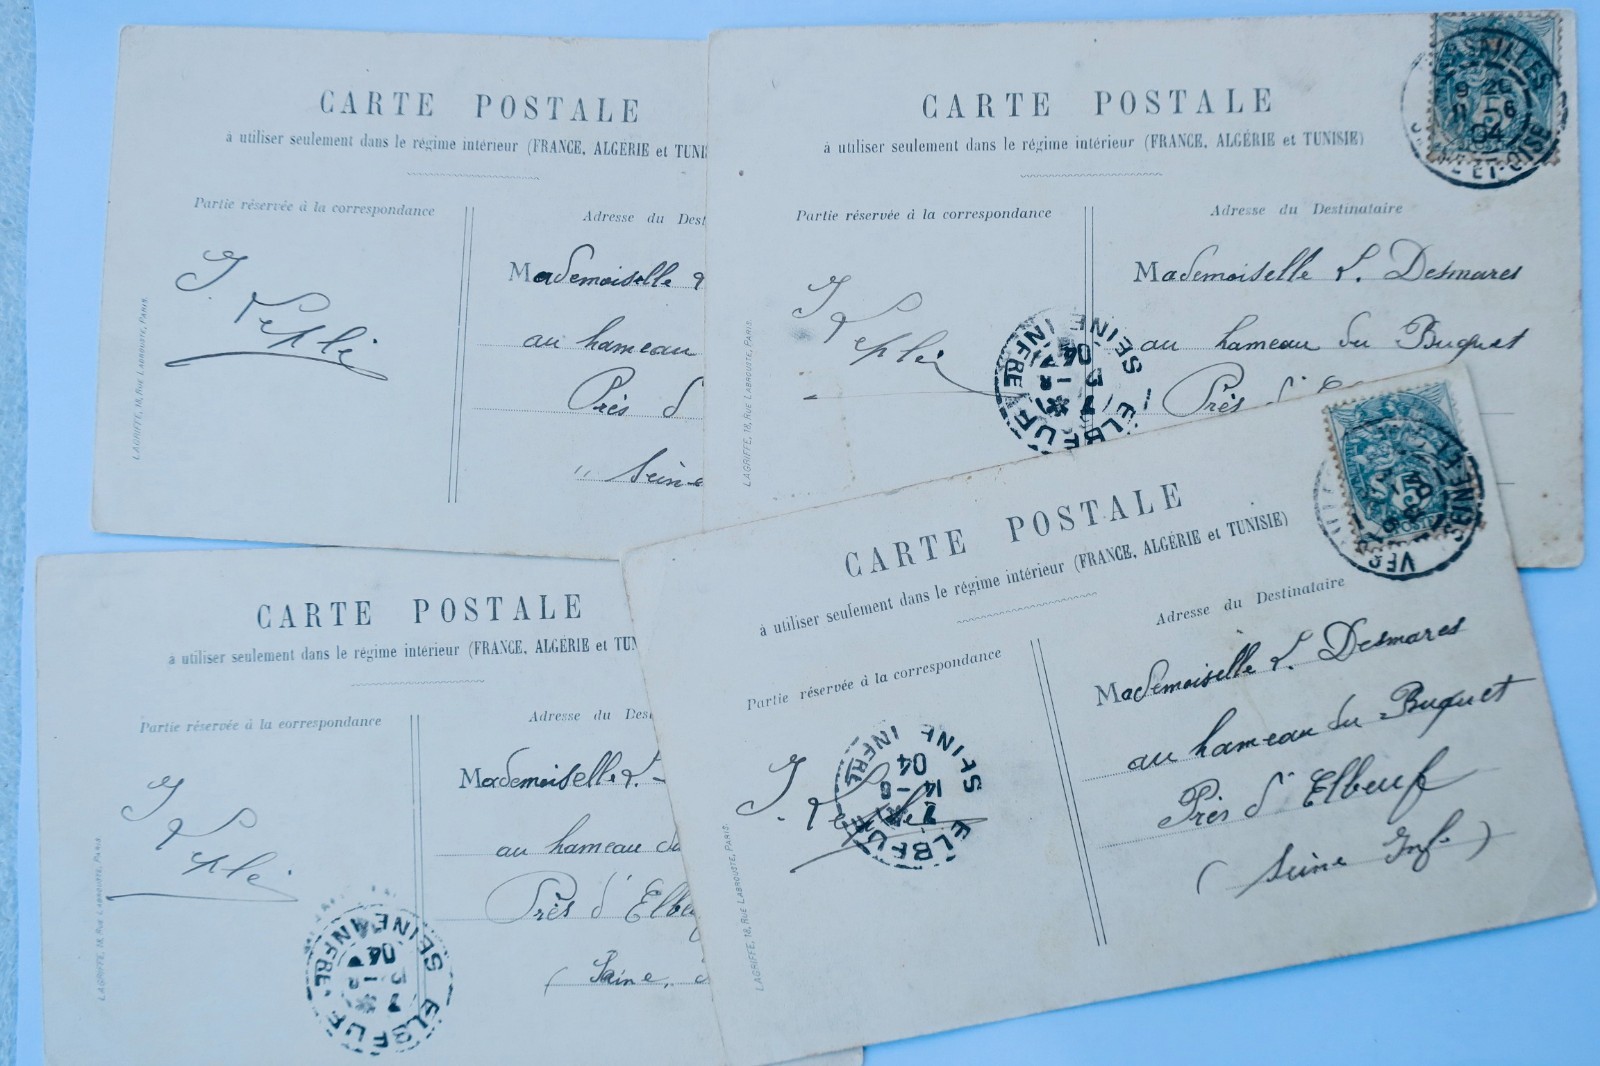 CARTE POSTALE
à utiliser seulement dans le régime intérieur (FRANCE, ALGÉRIE et TUNI
Partie réservée à la correspondance
Adresse du Dest
Mademoiselle
au hameau
Près d'
Seine
LAGRIFFE, 18, RUE LABROUSTE, PARIS.
CARTE POSTALE
à utiliser seulement dans le régime intérieur (FRANCE, ALGÉRIE et TUNISIE)
Partie réservée à la correspondance
Adresse du Destinataire
Mademoiselle L. Desmares
au hameau du Buquet
Près d'
LAGRIFFE, 18, RUE LABROUSTE, PARIS.
ELBEUF
SEINE INFRE
04
VERSAILLES
04
SEINE-ET-OISE
CARTE POSTALE
à utiliser seulement dans le régime intérieur (FRANCE, ALGÉRIE et TUN
Partie réservée à la correspondance
Adresse du Des
Mademoiselle L.
au hameau du
Près d'Elbeu
(Seine,
LAGRIFFE, 18, RUE LABROUSTE, PARIS.
ELBEUF
SEINE INFRE
04
CARTE POSTALE
à utiliser seulement dans le régime intérieur (FRANCE, ALGÉRIE et TUNISIE)
Partie réservée à la correspondance
Adresse du Destinataire
Mademoiselle L. Desmares
au hameau du Buquet
Près d'Elbeuf
(Seine Inf.)
LAGRIFFE, 18, RUE LABROUSTE, PARIS.
ELBEUF
SEINE INFRE
14-6
04